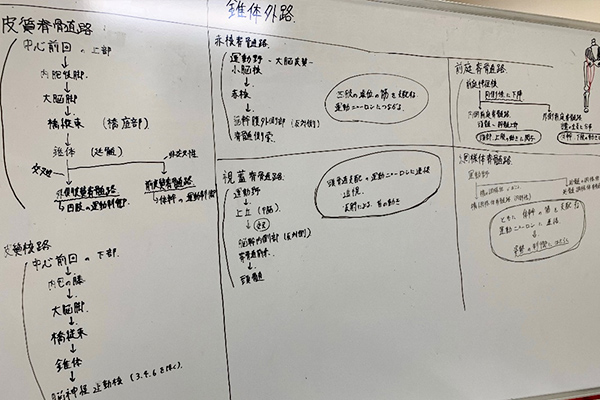 皮質脊髄道路
中心前回の上部
内包後脚
大脳脚
橋縦束 (橋底部)
錐体 (延髄)
交叉性
非交叉性
外側皮質脊髄路
→四肢の運動制御
前皮質脊髄路
→体幹の運動制御
皮質核路
中心前回の下部
内包の膝
大脳脚
橋縦束
錐体
脳神経運動核 (3.4.6を除く)
錐体外路
赤核脊髄道路
運動野・大脳皮質
小脳核
赤核
脳幹腹外側部 (反対側)
脊髄側索
四肢の遠位の筋を支配する
運動ニューロンにつながる
視蓋脊髄道路
運動野
上丘 (中脳)
交叉
脳幹内側部 (反対側)
脊髄前索
頸髄
頸髄運動
運動ニューロンに連接
反射による首の動き
前庭脊髄道路
前庭神経核
同側性に下降
内側前庭脊髄路
外側前庭脊髄路
網様体脊髄路
運動野
主に体幹の筋を支配
運動ニューロンに連接
姿勢の制御